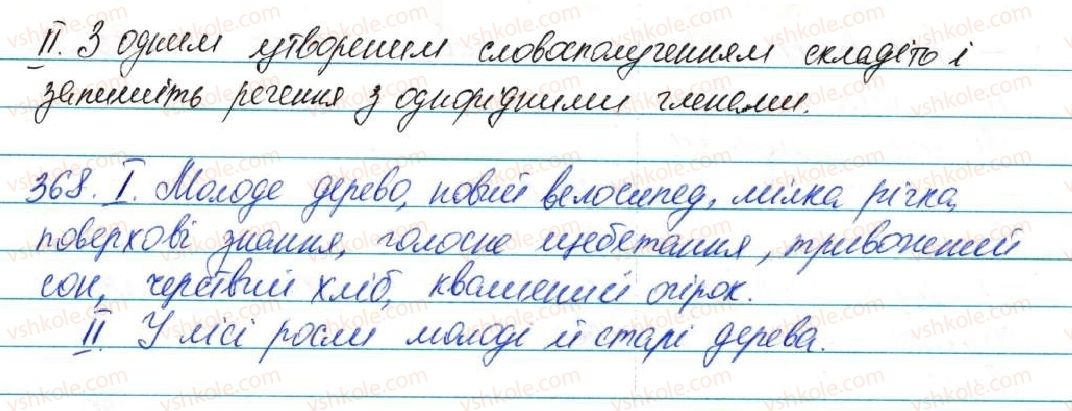 II. З одним утвореним словосполученням складіть і
запишіть речення з однорідними членами.
368. I. Молоде дерево, новий велосипед, мілка річка,
поверхові знання, голосне щебетання, тривожний
сон, черствий хліб, квашений огірок.
II. У лісі росли молоді й старі дерева.